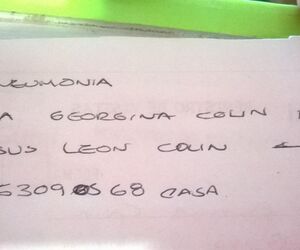 NEUMONIA
A GEORGINA COLIN
SUS LEON COLIN ←
5309 0568 CASA